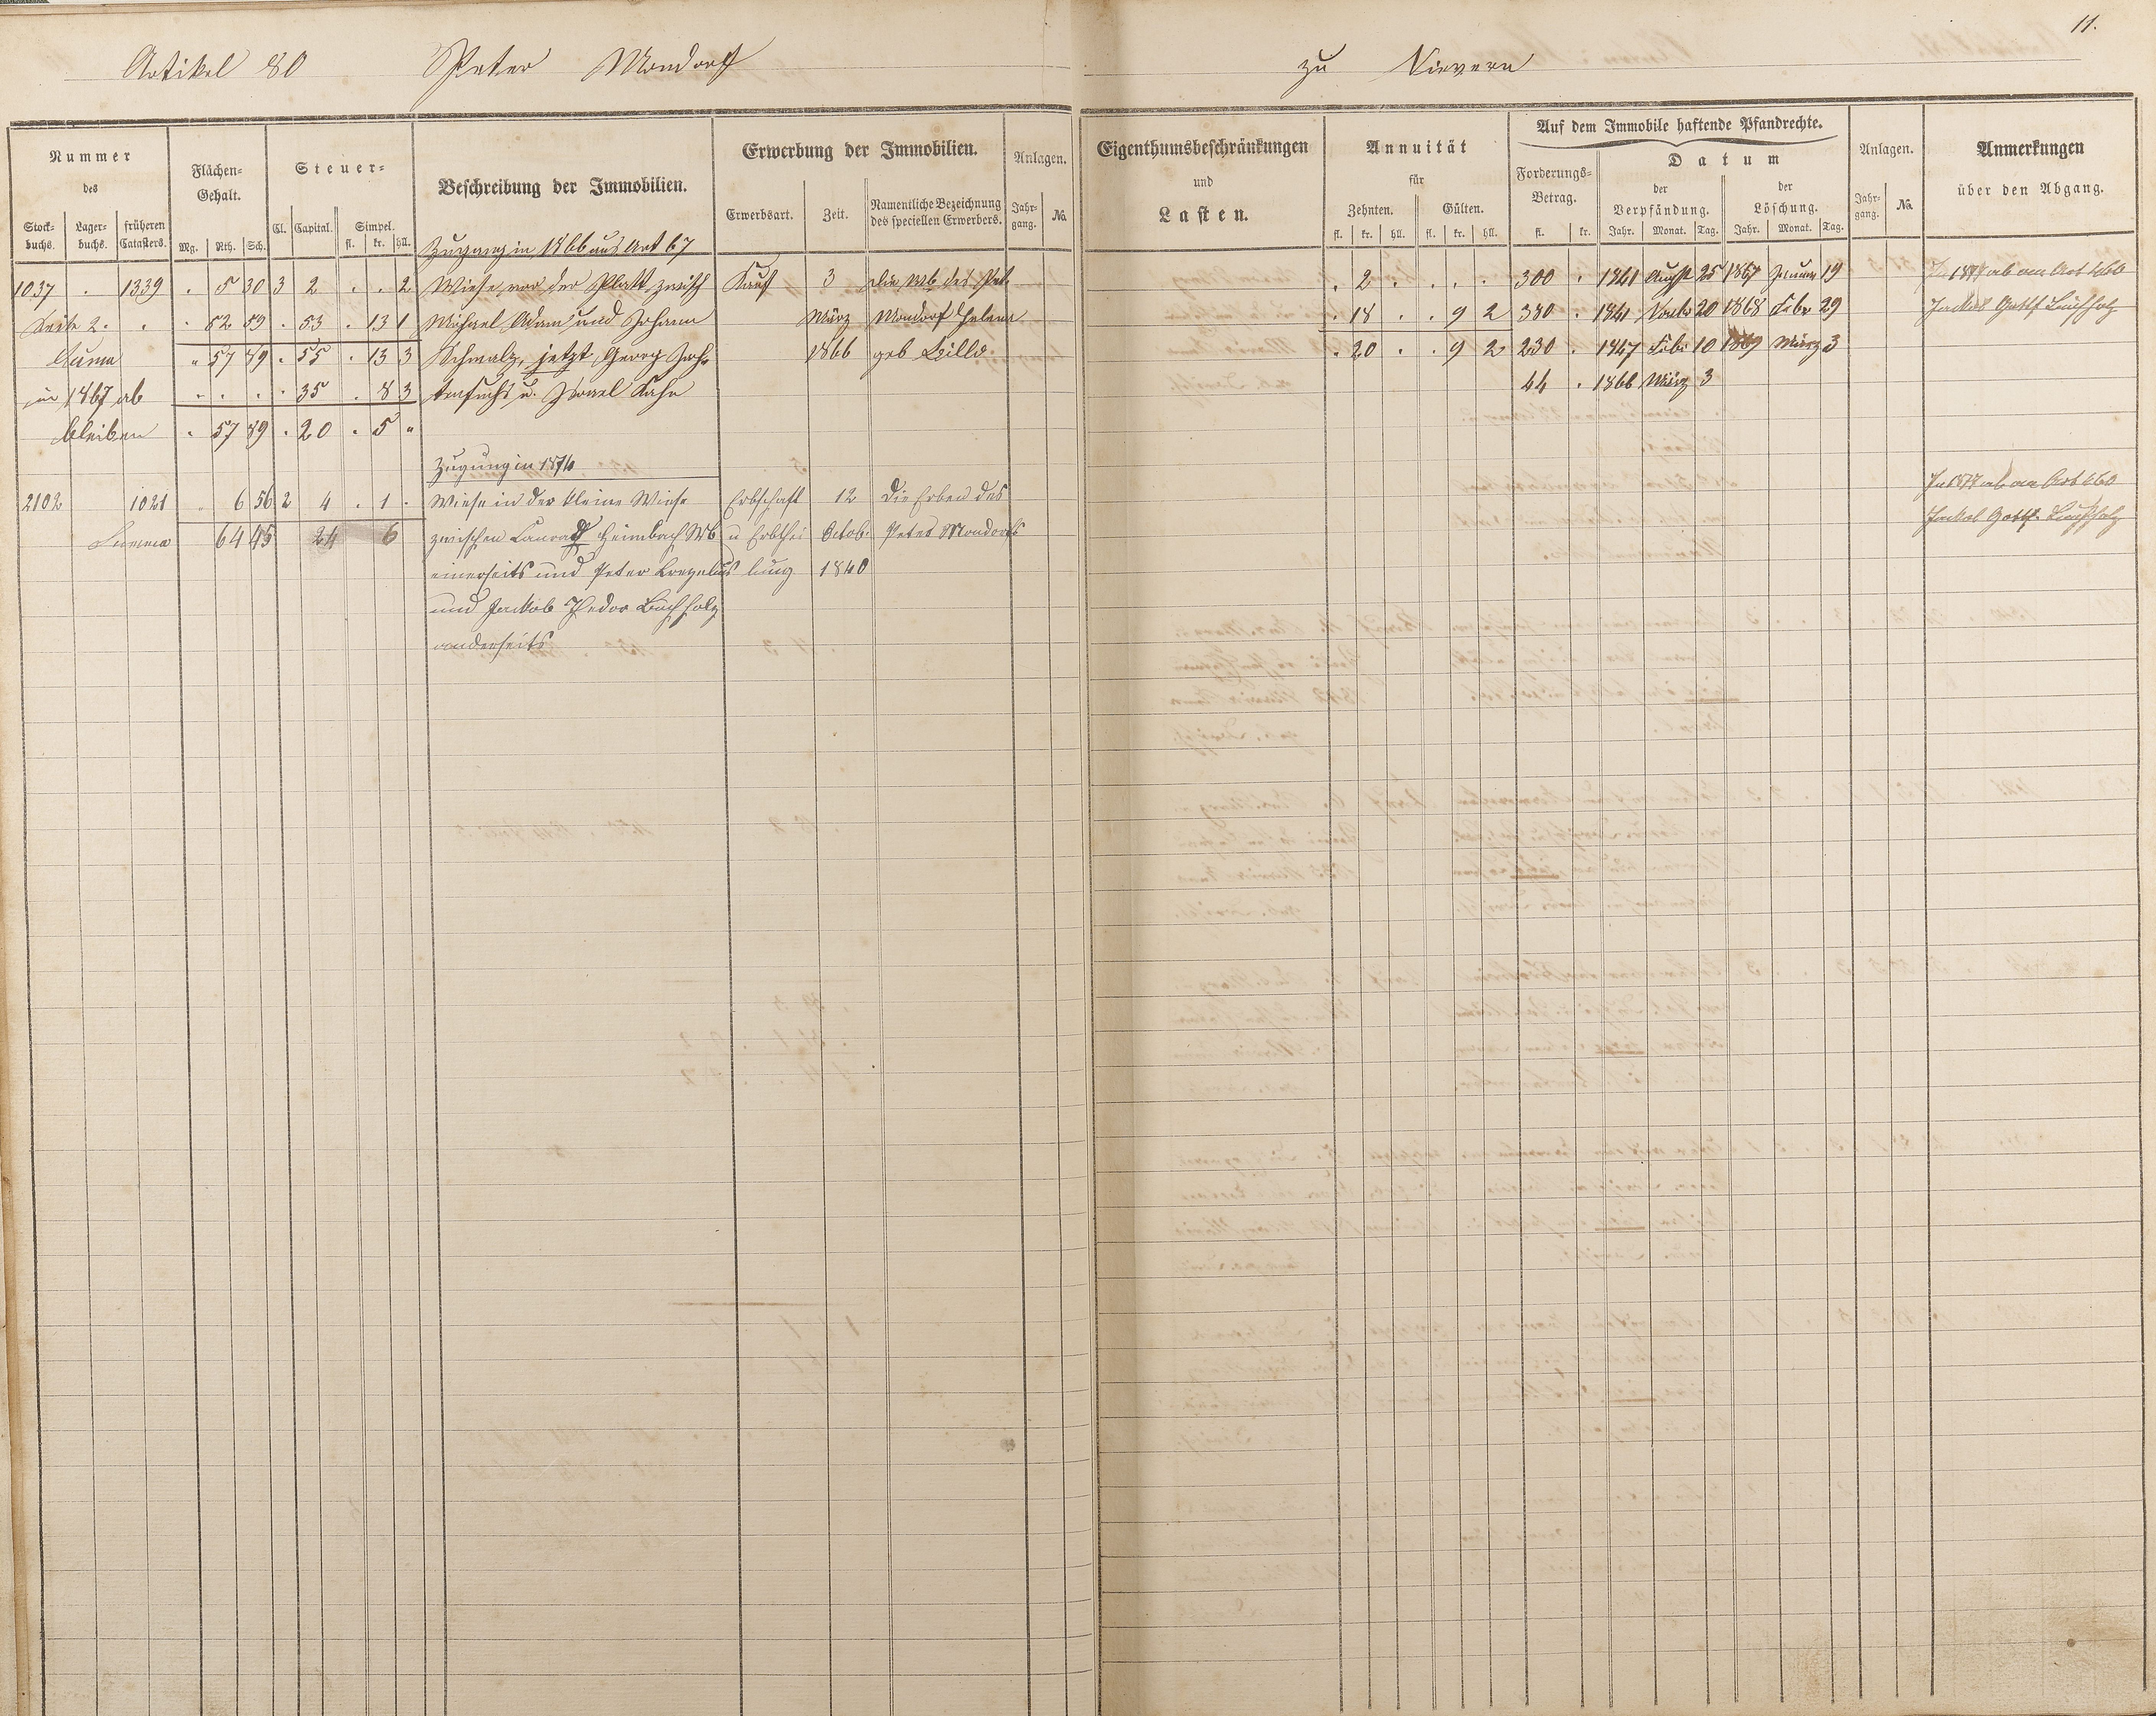 11.
Artikel 80 Peter Mondorf zu Nievern
Nummer des
Stock-buchs. Lager-buchs. früheren Catasters.
Flächen-Gehalt.
Mg. Rth. Sch.
Steuer-
Cl. Capital. Simpel.
fl. kr. hll.
Beschreibung der Immobilien.
Erwerbung der Immobilien.
Erwerbsart. Zeit. Namentliche Bezeichnung des speciellen Erwerbers.
Anlagen.
Jahr-gang. No.
Eigenthumsbeschränkungen
und
Lasten.
Annuität
für
Zehnten. Gülten.
fl. kr. hll. fl. kr. hll.
Auf dem Immobile haftende Pfandrechte.
Forderungs-Betrag.
fl. kr.
Datum
der Verpfändung. der Löschung.
Jahr. Monat. Tag. Jahr. Monat. Tag.
Anlagen.
Jahr-gang. No.
Anmerkungen
über den Abgang.
Zugang in 1866 aus Art 67
1037 . 1339 . 5 30 3 2 . . 2 Wiese vor der Platt zwisch Kauf 3 die Wb des Pet . 2 . . . . 300 . 1841 Augst 25 1867 Januar 19 ab an Art 460
Seite 2 . . . 52 59 . 53 . 13 1 Michael Adam und Johann März Mondorf Helena . 18 . . 9 2 380 . 1841 20 1868 Febr 29 Jackob Gotth Buchholz
Suma " 57 89 . 55 . 13 3 Schmalz, jetzt Georg 1866 geb . 20 . . 9 2 230 . 1847 Febr 10 1869 März 3
in 1867 ab . . . . 35 . 8 3 u. Kahn 44 . 1866 März 3
bleiben . 57 89 . 20 . 5 "
Zugang in 1874
2102 1021 . 6 56 2 4 . 1 . Wiese in der kleine Wiese Erbschaft 12 Die Erben des ab an Art 460
Summa 64 45 24 6 zwischen Heimbach Wb u Erbthei Octob. Peter Mondorfs Jackob Gotth. Buchholz
einerseits und Peter lung 1840
und Jackob Buchholz
anderseits